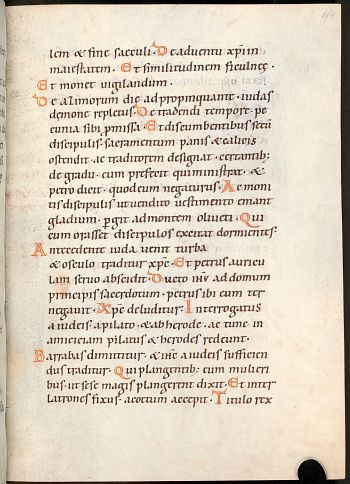 lem & fine saeculi · De adventu xp̄i in
maiestatem · Et similitudinem ficulneę ·
Et monet vigilandum ·
De azimorum die adpropinquante · iudas
demone repletus · De tradendi tempore · pe
cunia sibi p̱missa · Et discumbentibus secū
discipulis · sacramentum panis & calicis
ostendit · ac traditorem designat · certantib;
de gradu · eum prefert qui ministrat · &
petro dicit · quod eum negaturus · Ac moni
tis discipulis ut vendito vestimento emant
gladium · pergit ad montem oliveti · Qui
cum orasset discipulos excitat dormientes ·
Antecedente iuda venit turba
& osculo traditur xp̄c · Et petrus auricu
lam servo abscidit · Ducto ihū ad domum
principis sacerdotum · petrus ibi eum ter
negavit · Xp̄c deluditur · Interrogatus
a iudeis · a pilato · & ab herode · ac tunc in
amiciciam pilatus & herodes redeunt ·
Barabas dimittitur · & ihc̄ a iudeis sufficien
dus traditur · Qui plangentib; eum mulieri
bus · ut se se magis plangerent dixit · Et inter
latrones fixus · acetum accepit · Titulo rex